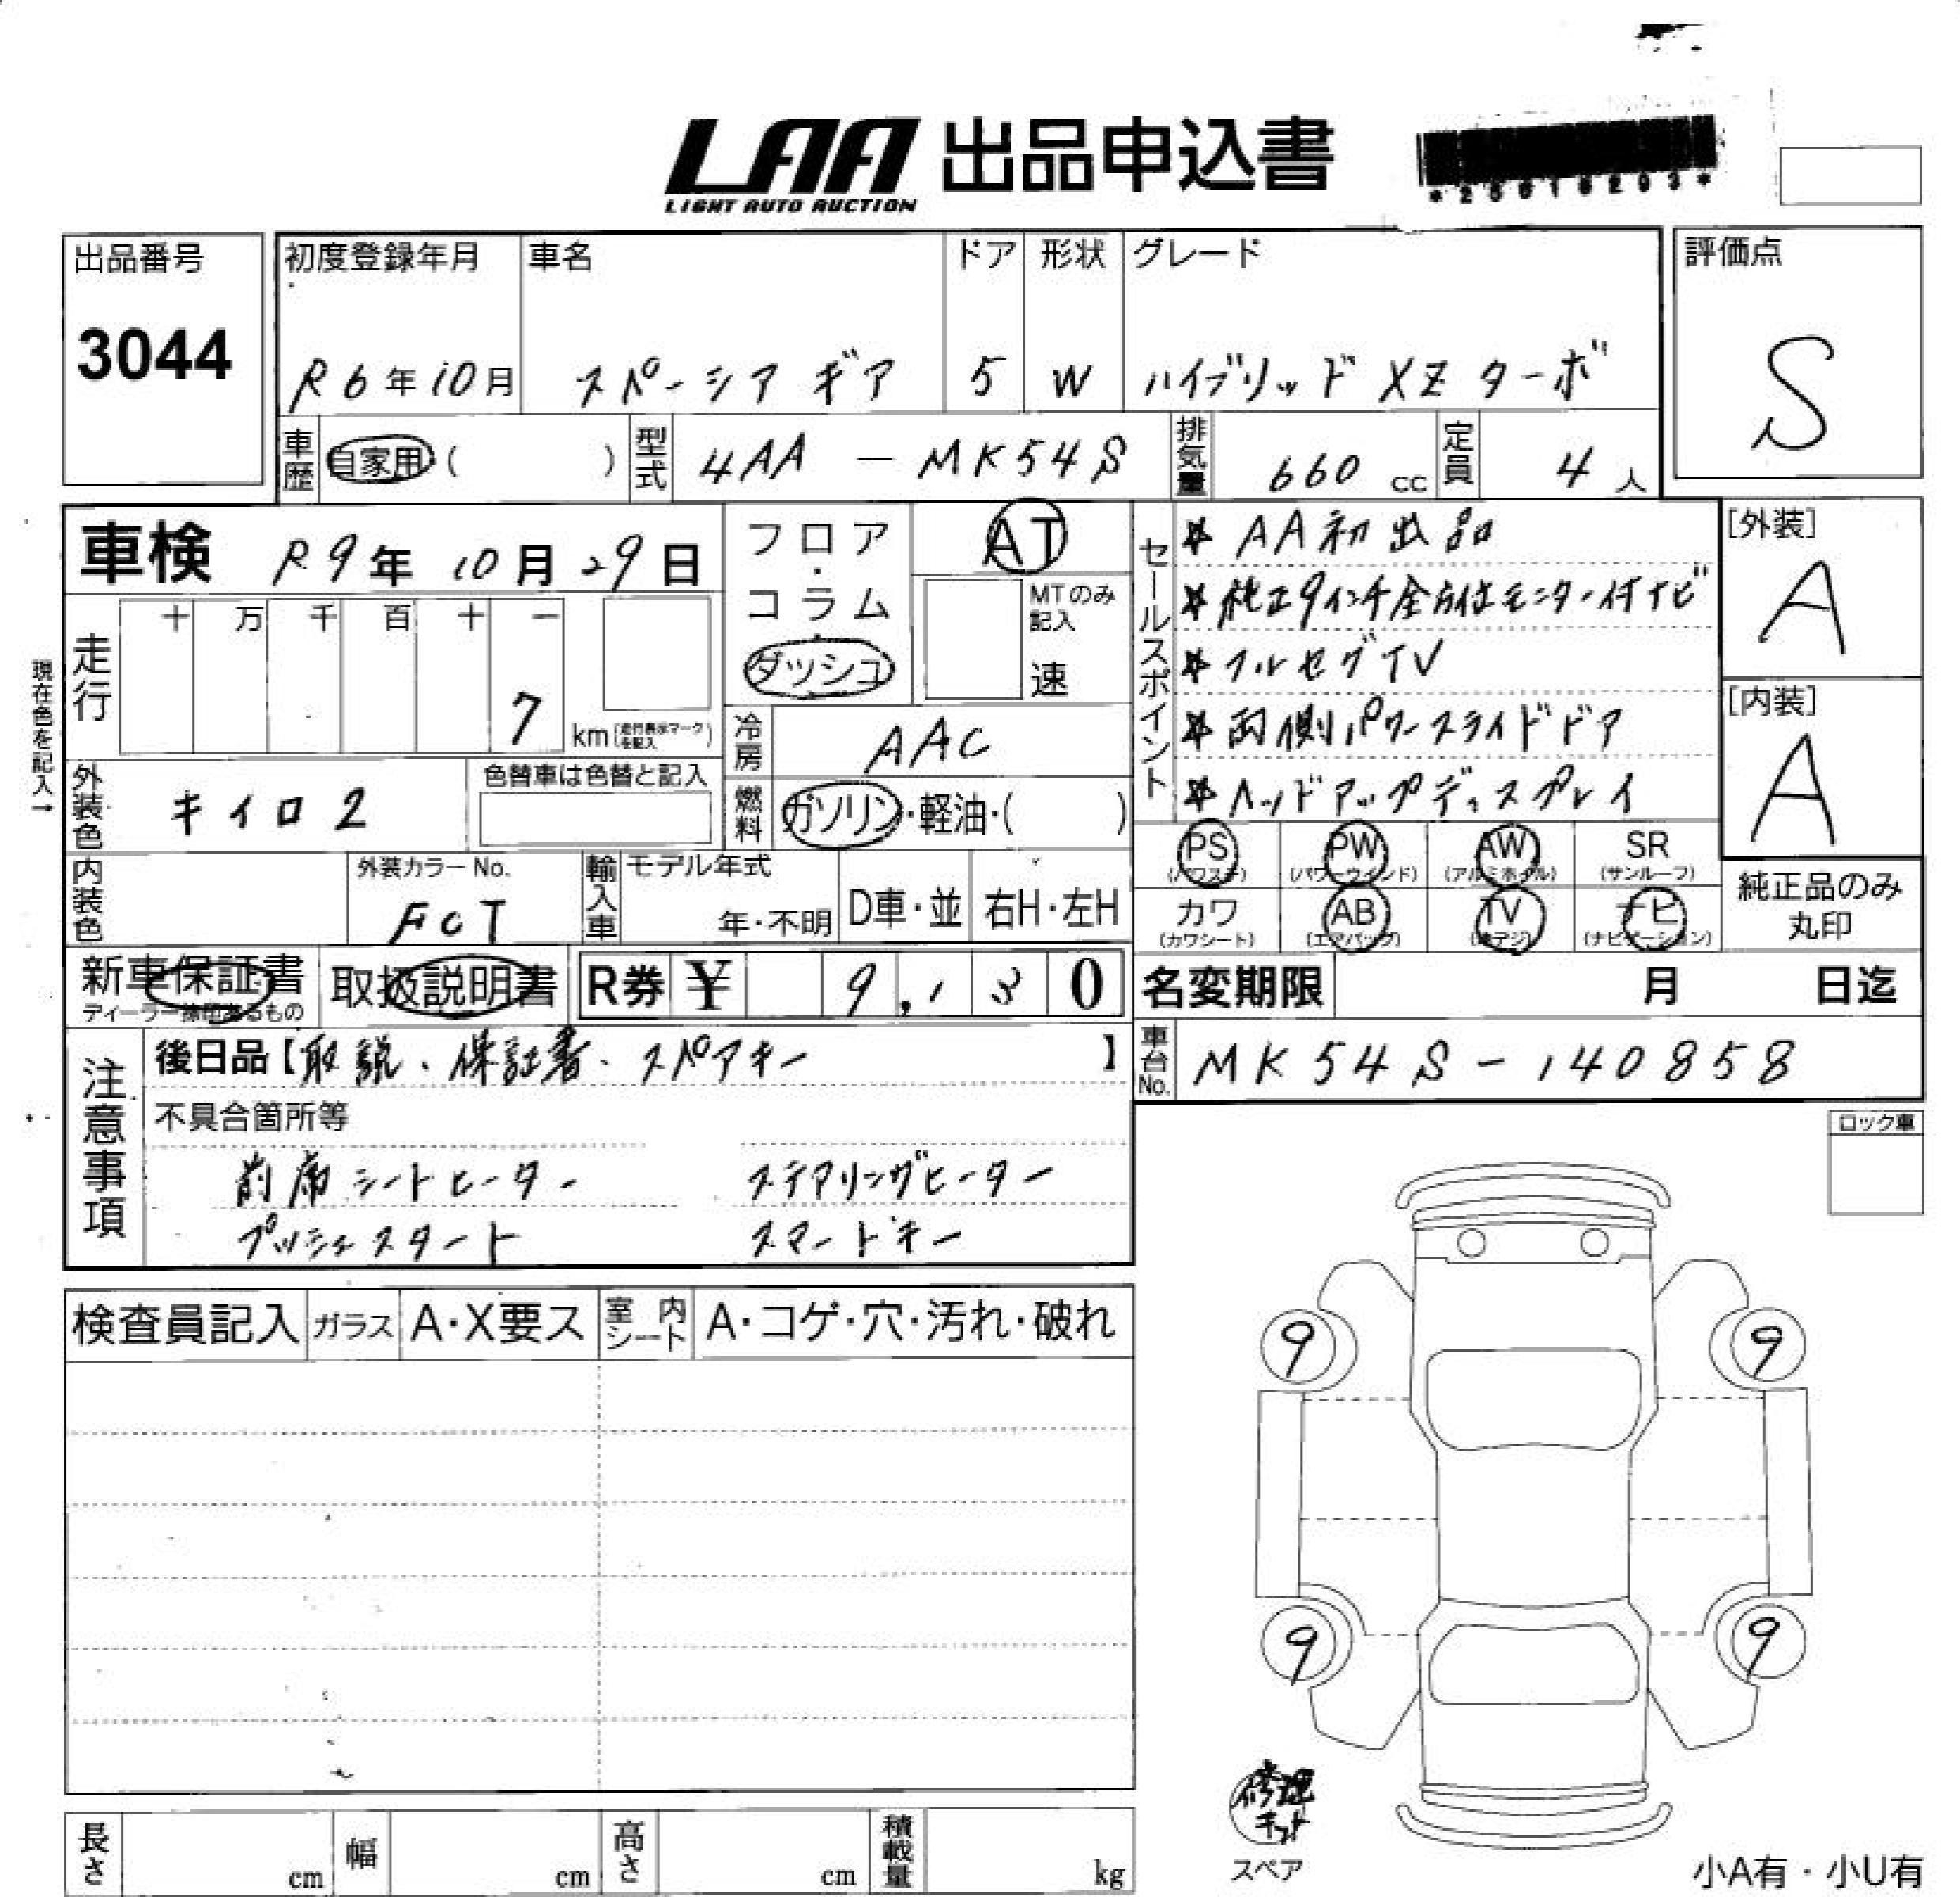 LAA 出品申込書
LIGHT AUTO AUCTION
出品番号
3044
初度登録年月
R6年10月
車名
スペーシア ギア
ドア
5
形状
W
グレード
ハイブリッド XZ ターボ
評価点
S
車歴 自家用 ( )
型式 4AA - MK54S
排気量 660 cc
定員 4 人
車検 R9年 10月 29日
フロア・コラム・ダッシュ
AT
MTのみ記入
速
走行 十 万 千 百 十 一
7 km (走行表示マークを記入)
現在色を記入→
冷房 AAC
外装色 キイロ2
色替車は色替と記入
燃料 ガソリン・軽油・( )
内装色
外装カラーNo.
FCT
輸入車 モデル年式
年・不明 D車・並 右H・左H
セールスポイント
* AA初出品
* 純正9インチ全方位モニター付ナビ
* フルセグTV
* 両側パワースライドドア
* ヘッドアップディスプレイ
[外装]
A
[内装]
A
PS PW AW SR
(パワステ) (パワーウインド) (アルミホイル) (サンルーフ)
カワ AB TV ナビ
(カワシート) (エアバッグ) (地デジ) (ナビゲーション)
純正品のみ
丸印
新車保証書
取扱説明書
R券 ¥ 9,130
名変期限 月 日迄
車台No. MK54S-140858
注意事項
後日品【取説、保証書、スペアキー】
不具合箇所等
前席シートヒーター ステアリングヒーター
プッシュスタート スマートキー
ロック車
検査員記入 ガラス A・X要ス 室内シート A・コゲ・穴・汚れ・破れ
9 9
9 9
修理
キット
スペア
小A有・小U有
長さ cm 幅 cm 高さ cm 積載量 kg